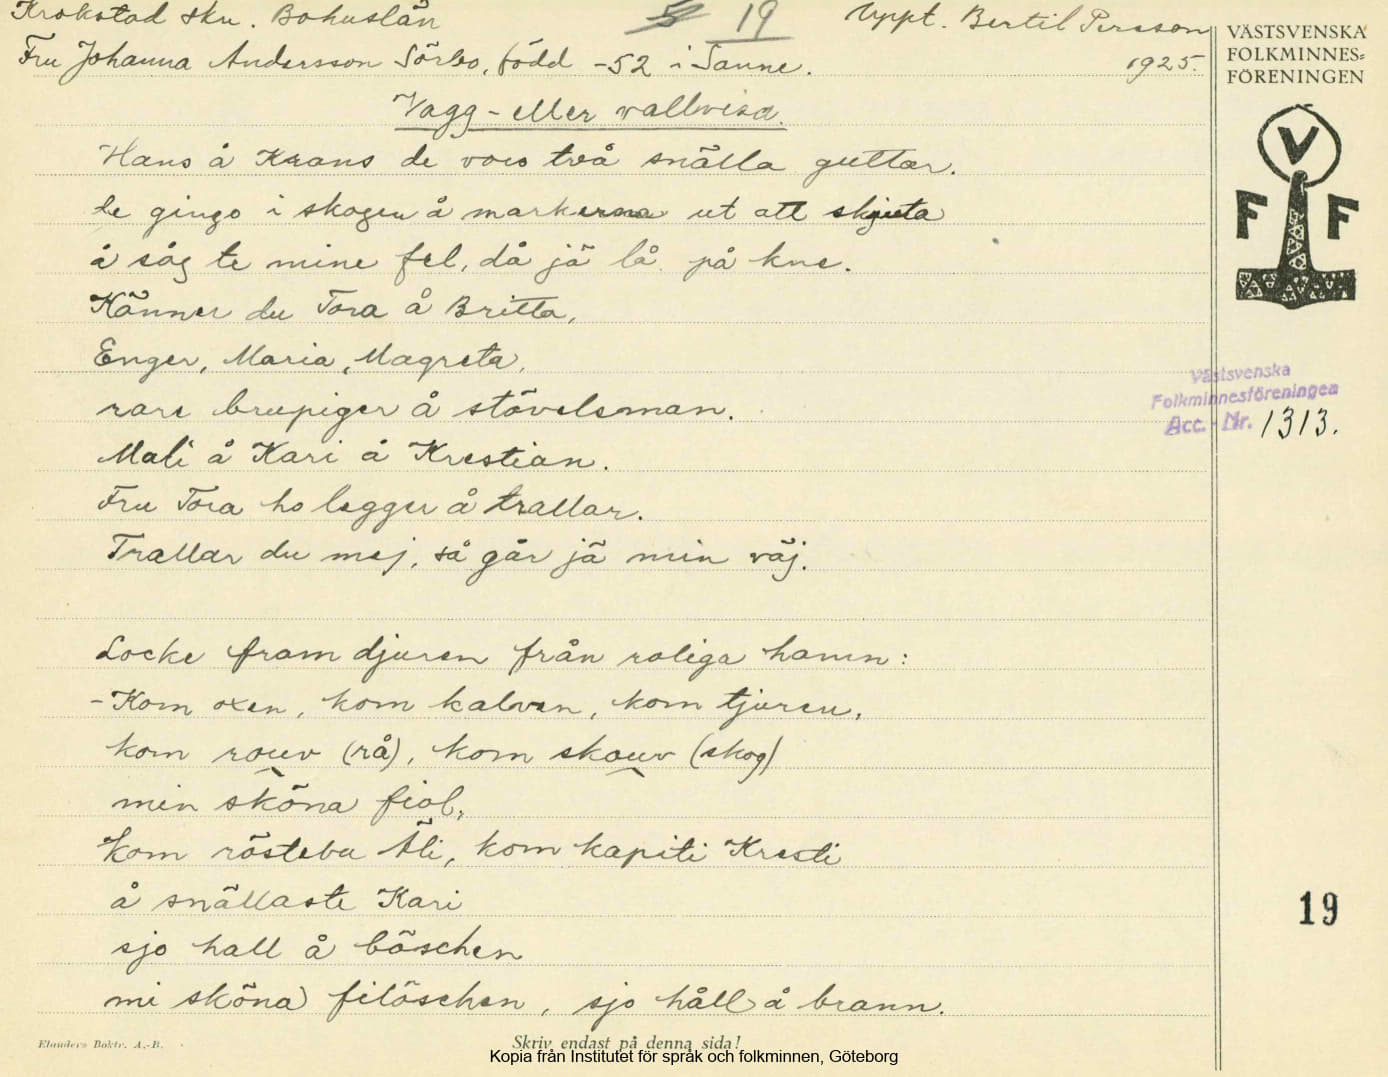 Krokstad skn. Bohuslän
5 19
Uppt. Bertil Persson
Fru Johanna Andersson Sörbo, född -52 i Sanne.
1925.
VÄSTSVENSKA
FOLKMINNES=
FÖRENINGEN
V
F F
Vagg- eller vallvisa.
Hans å Krans de voro två snälla guttar.
de gingo i skogen å markerna ut att skjuta
å såg te mine fel, då jä lå på kne.
Känner du Tora å Britta,
Enger, Maria, Magreta,
rare brupiger å stövelsman.
Mali å Kari å Krestian.
Fru Tora ho legger å trallar.
Trallar du mej, så går jä min väj.
Västsvenska
Folkminnesföreningen
Acc. Nr. 1313.
Locke fram djuren från roliga hamn:
-Kom oxen, kom kalven, kom tjuren,
kom rouv (rå), kom skouv (skog)
min sköna fiol,
kom rösteba Äli, kom kapiti Kresti
å snällaste Kari
sjo hall å böschen
mi sköna filöschen, sjo håll å brann.
19
Elanders Boktr. A.-B.
Skriv endast på denna sida!
Kopia från Institutet för språk och folkminnen, Göteborg